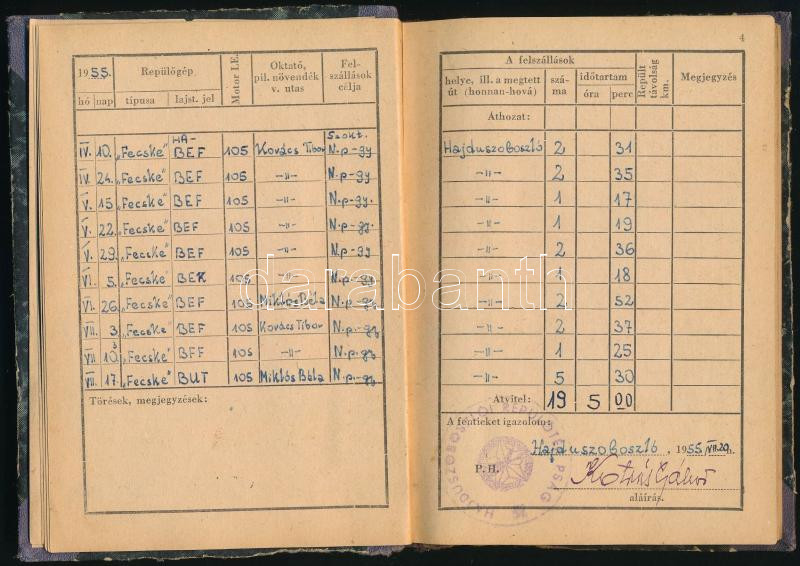 1955. Repülőgép Motor LE. Oktató, pil. növendék v. utas Felszállások célja
hó nap típusa lajst. jel
HA- Szokt.
IV. 10. „Fecske" BEF 105 Kovács Tibor N.p-gy
IV. 24. „Fecske" BEF 105 -〃- N.p-gy
V. 15. „Fecske" BEF 105 -〃- N.p-gy.
V. 22. „Fecske" BEF 105 -〃- N.p-gy.
V. 29. „Fecske" BEF 105 -〃- N.p-gy
VI. 5. „Fecske" BEK 105 -〃- N.p-gy
VI. 26. „Fecske" BEF 105 Miklós Béla N.p-gy
VII. 3. „Fecske" BEF 105 Kovács Tibor N.p-gy
VII. 10. „Fecske" BFF 105 -〃- N.p-gy
VII. 17. „Fecske" BUT 105 Miklós Béla N.p-gy
Törések, megjegyzések:
4
A felszállások Repült távolság km. Megjegyzés
helye, ill. a megtett út (honnan-hová) száma időtartam
óra perc
Áthozat:
Hajduszoboszló 2 31
-〃- 2 35
-〃- 1 17
-〃- 1 19
-〃- 2 36
-〃- 1 18
-〃- 2 52
-〃- 2 37
-〃- 1 25
-〃- 5 30
Átvitel: 19 5 00
A fentieket igazolom:
Hajduszoboszló, 1955 VII.20.
P. H.
aláírás.
HAJDUSZOBOSZLÓI REPÜLŐTÉR
darabanth